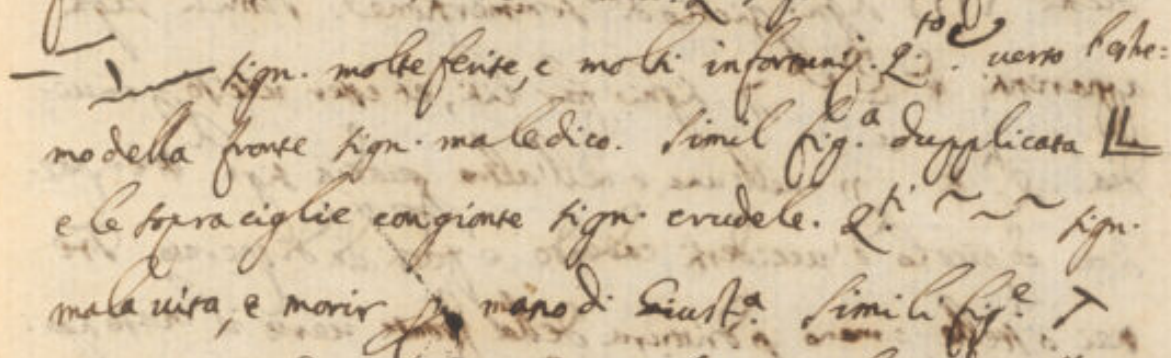 sign. molte ferite, e molti infortunij. Q.to verso l'estre:
mo della fronte sign. maledico. Simil fig.a dupplicata
e le sopraciglie congionte sign. crudele. Q.ti sign.
mala vita, e morir in mano di Giust.a Simili fig.e